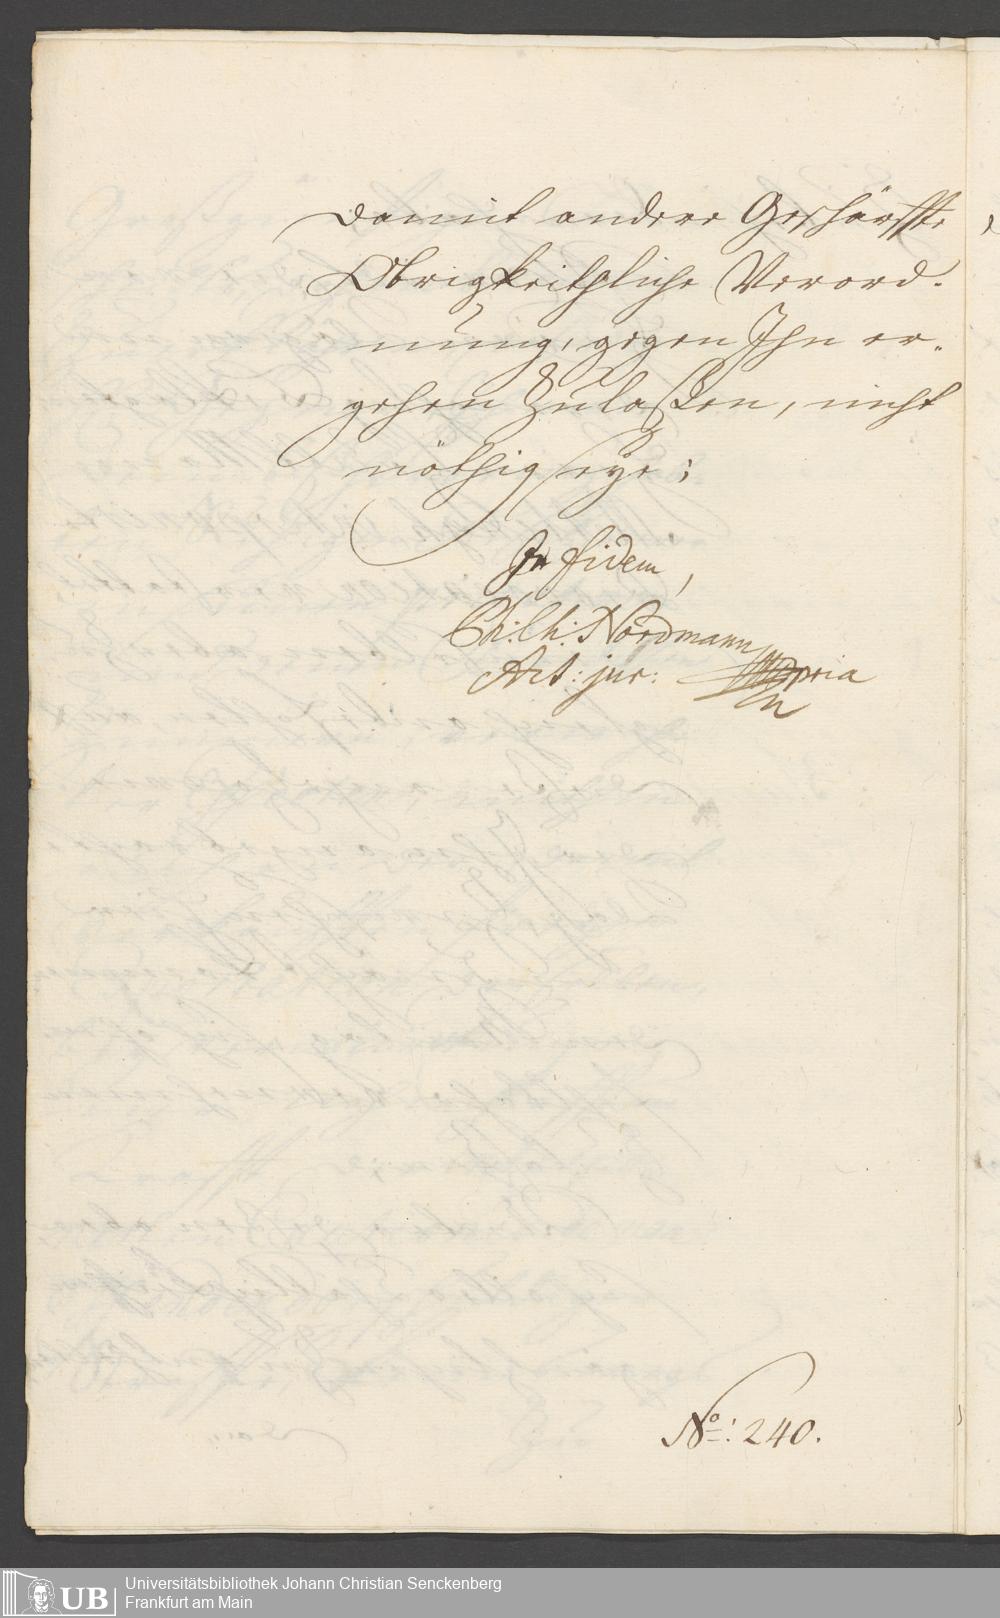 damit andere Geschärffte
Obrigkeithliche Verord-
nung, gegen Ihn er-
gehen Zulaßen, nicht
nöthig seye;
In fidem,
Ph: Ch: Nordmann
Act: jur: mppria
No: 240.
UB
Universitätsbibliothek Johann Christian Senckenberg
Frankfurt am Main